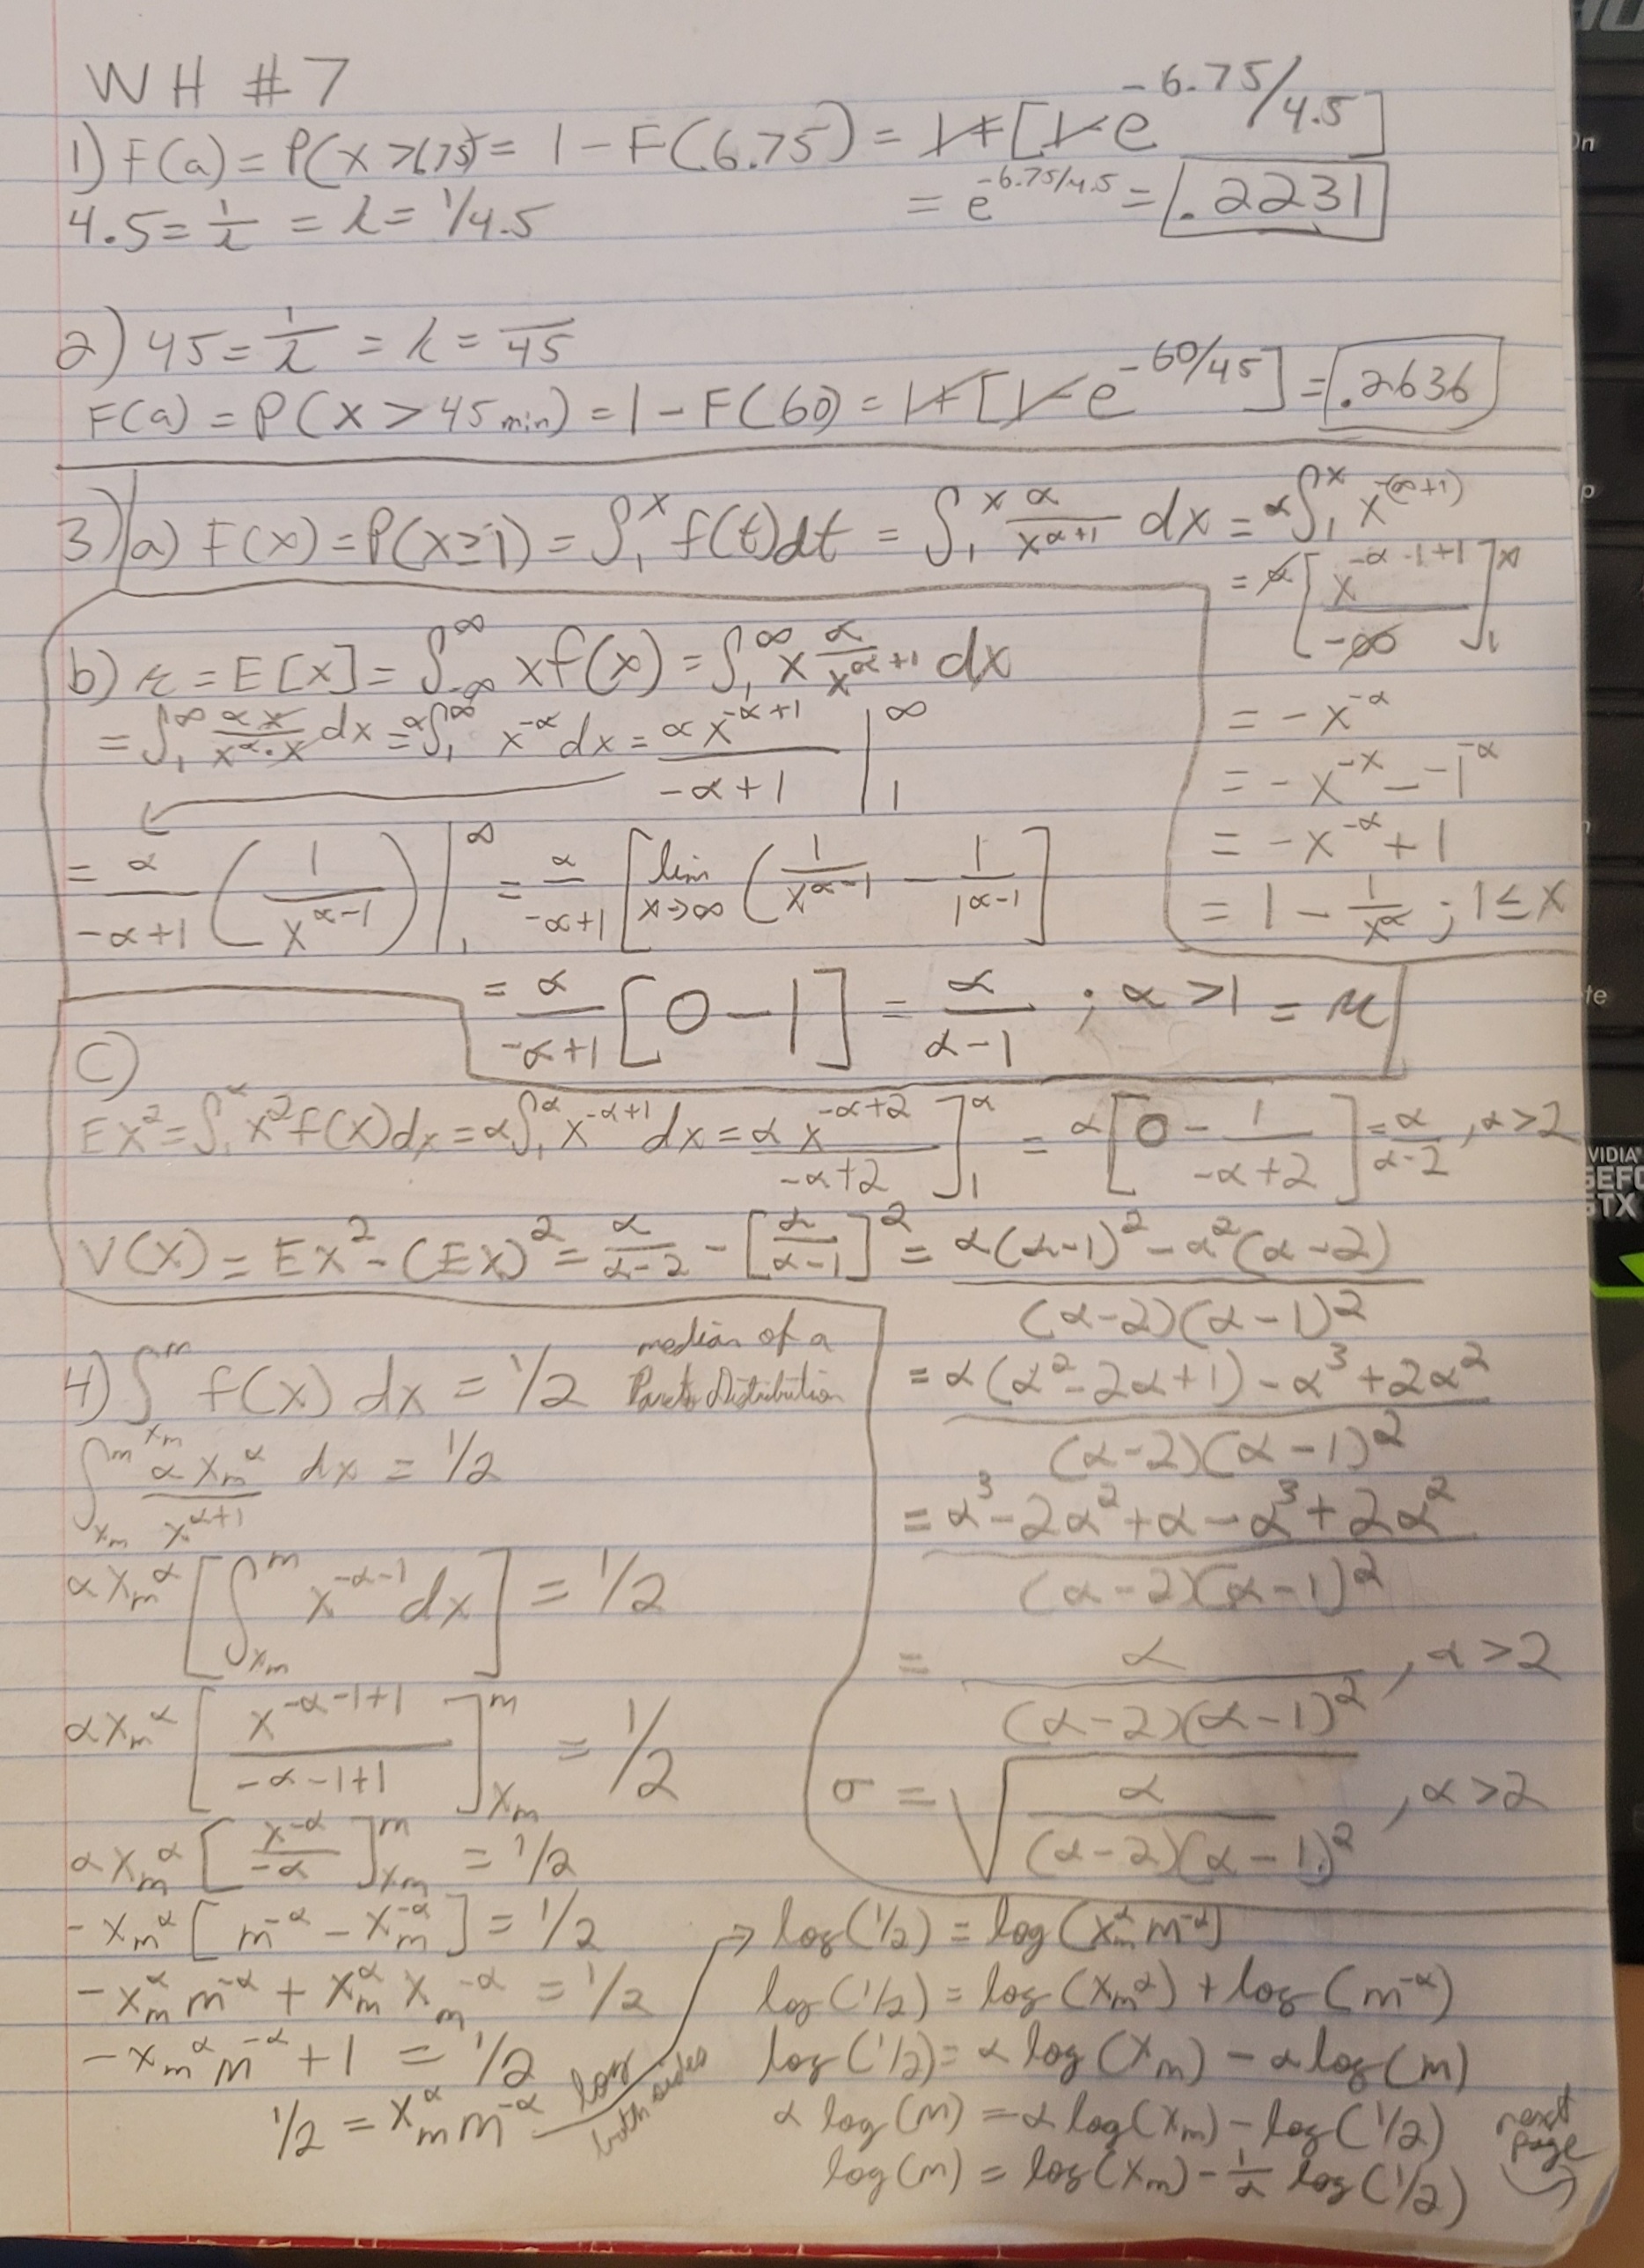 WH #7
1) F(a) = P(X > 6.75) = 1 - F(6.75) = 1 + [1 - e^{-6.75/4.5}]
4.5 = 1/λ = λ = 1/4.5
= e^{-6.75/4.5} = .2231
2) 45 = 1/λ = λ = 1/45
F(a) = P(X > 45 min) = 1 - F(60) = 1 + [1 - e^{-60/45}] = .2636
3) a) F(x) = P(x ≥ 1) = ∫_1^x f(t)dt = ∫_1^x α/x^{α+1} dx = α∫_1^x x^{-(α+1)}
= α[x^{-α-1+1}/-α]_1^x
= -x^{-α}
= -x^{-x} - -1^{-α}
= -x^{-α} + 1
= 1 - 1/x^α ; 1 ≤ x
b) μ = E[x] = ∫_{-∞}^∞ x f(x) = ∫_1^∞ x α/x^{α+1} dx
= ∫_1^∞ αx/(x^α·x) dx = α∫_1^∞ x^{-α} dx = αx^{-α+1}/(-α+1) |_1^∞
= α/(-α+1) (1/x^{α-1}) |_1^∞ = α/(-α+1) [lim x→∞ (1/x^{α-1} - 1/1^{α-1}]
= α/(-α+1) [0 - 1] = α/(α-1) ; α > 1 = μ
c)
EX^2 = ∫_1^α x^2 f(x)dx = α∫_1^α x^{-α+1} dx = αx^{-α+2}/(-α+2) ]_1^α = α[0 - 1/(-α+2)] = α/(α-2), α > 2
V(X) = EX^2 - (EX)^2 = α/(α-2) - [α/(α-1)]^2 = (α(α-1)^2 - α^2(α-2))/((α-2)(α-1)^2)
= (α(α^2 - 2α + 1) - α^3 + 2α^2)/((α-2)(α-1)^2)
= (α^3 - 2α^2 + α - α^3 + 2α^2)/((α-2)(α-1)^2)
= α/((α-2)(α-1)^2), α > 2
σ = √(α/((α-2)(α-1)^2)), α > 2
4) ∫_{x_m}^m f(x) dx = 1/2 median of a Pareto Distribution
∫_{x_m}^m αx_m^α/x^{α+1} dx = 1/2
αx_m^α [∫_{x_m}^m x^{-α-1} dx] = 1/2
αx_m^α [x^{-α-1+1}/(-α-1+1)]_{x_m}^m = 1/2
αx_m^α [x^{-α}/-α]_{x_m}^m = 1/2
-x_m^α [m^{-α} - x_m^{-α}] = 1/2
-x_m^α m^{-α} + x_m^α x_m^{-α} = 1/2
-x_m^α m^{-α} + 1 = 1/2
1/2 = x_m^α m^{-α} log both sides
→ log(1/2) = log(x_m^α m^{-α})
log(1/2) = log(x_m^α) + log(m^{-α})
log(1/2) = α log(x_m) - α log(m)
α log(m) = α log(x_m) - log(1/2)
log(m) = log(x_m) - 1/α log(1/2)
next page